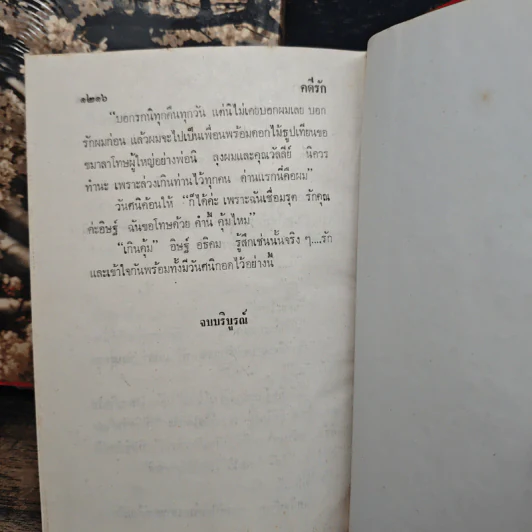 ๑๒๑๖
คดีรัก
"บอกรกนิทุกคืนทุกวัน แต่นิไม่เคยบอกผมเลย บอก
รักผมก่อน แล้วผมจะไปเป็นเพื่อนพร้อมดอกไม้ธูปเทียนขอ
ขมาลาโทษผู้ใหญ่อย่างพ่อนิ ลุงผมและคุณวัลลีย์ นิควร
ทำนะ เพราะล่วงเกินท่านไว้ทุกคน ด่านแรกนี่คือผม"
วันศนิค้อนให้ "ก็ได้ค่ะ เพราะฉันเชื่อมรุต รักคุณ
ค่ะอิษฐ์ ฉันขอโทษด้วย คำนี้ คุ้มไหม"
"เกินคุ้ม" อิษฐ์ อธิคม รู้สึกเช่นนั้นจริง ๆ....รัก
และเข้าใจกันพร้อมทั้งมีวันศนิกอดไว้อย่างนี้
จบบริบูรณ์